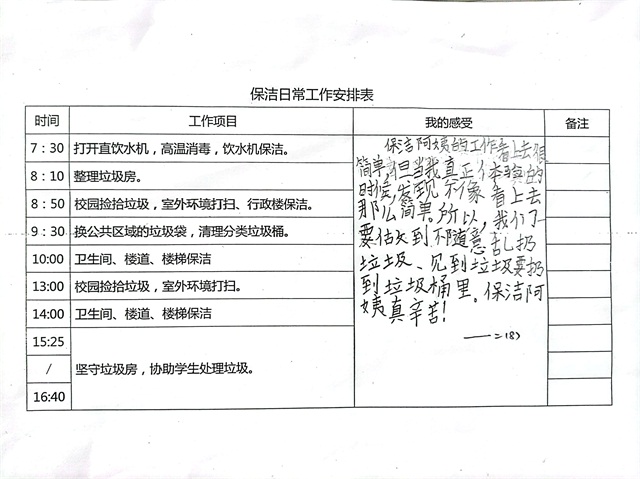 保洁日常工作安排表
时间 工作项目 我的感受 备注
7：30 打开直饮水机，高温消毒，饮水机保洁。
8：10 整理垃圾房。
8：50 校园捡拾垃圾，室外环境打扫、行政楼保洁。
9：30 换公共区域的垃圾袋，清理分类垃圾桶。
10:00 卫生间、楼道、楼梯保洁
13:00 校园捡拾垃圾，室外环境打扫。
14:00 卫生间、楼道、楼梯保洁
15:25
/ 坚守垃圾房，协助学生处理垃圾。
16:40
保洁阿姨的工作看上去很
简单，但当我真正体验的
时候，发现不像看上去
那么简单。所以，我们
要做到不随意乱扔
垃圾、见到垃圾要扔
到垃圾桶里。保洁阿
姨真辛苦！